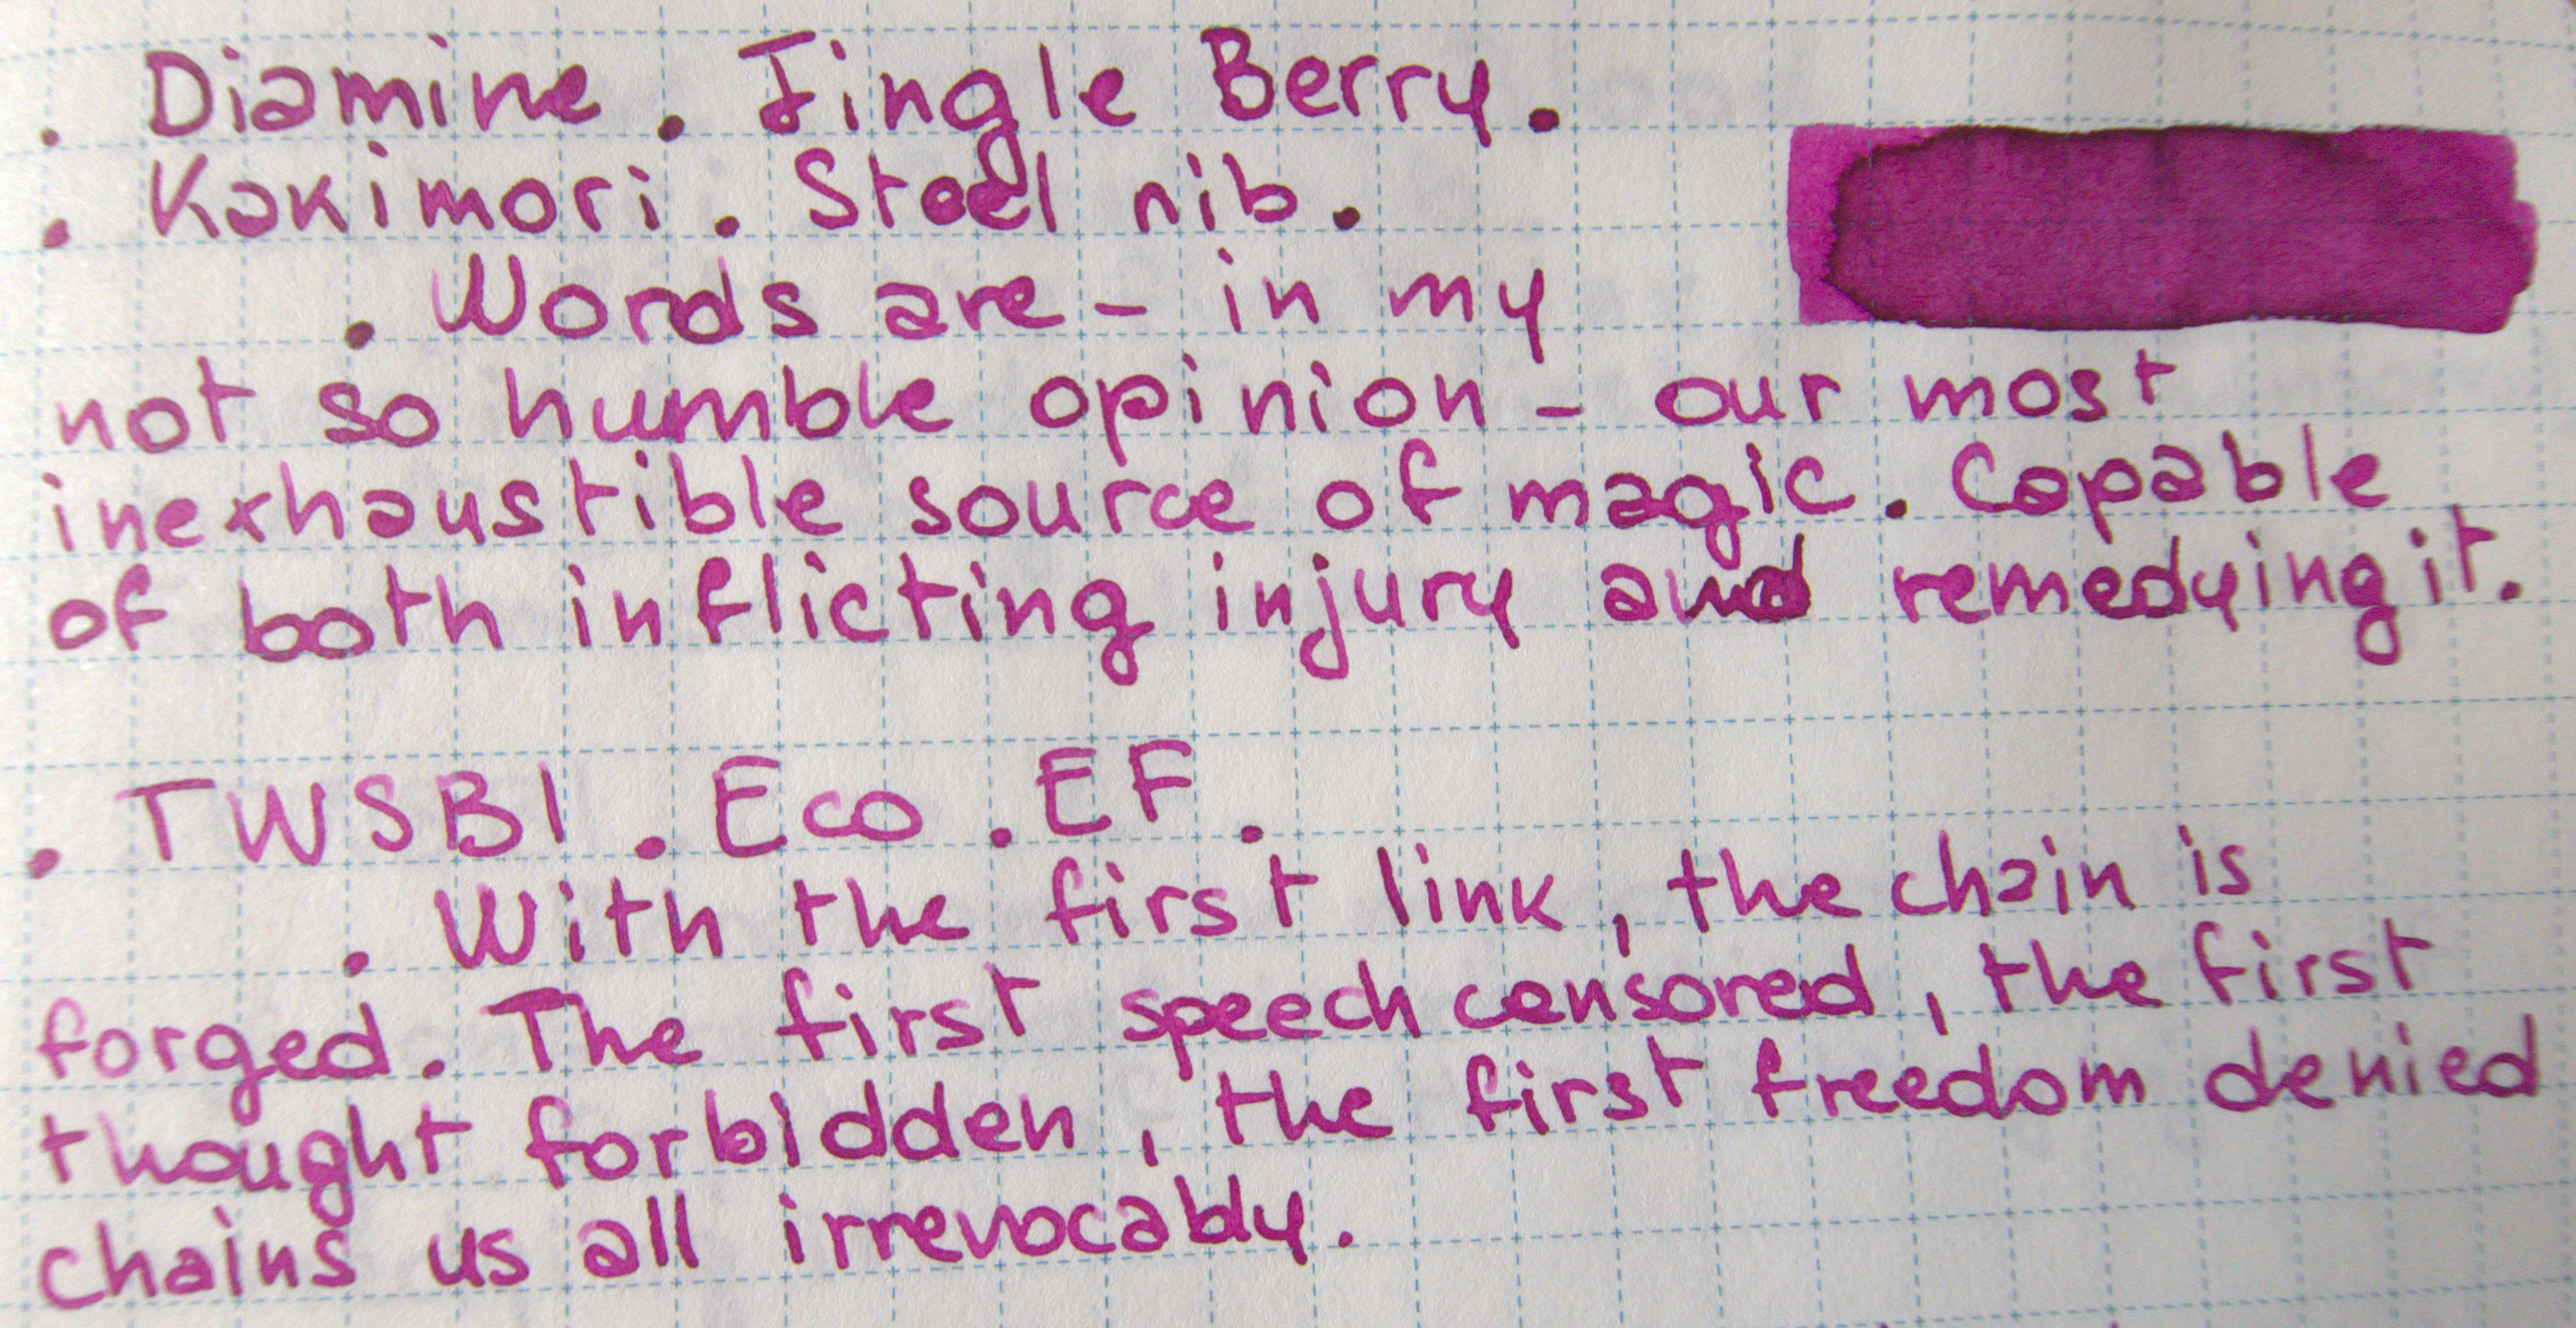 . Diamine . Jingle Berry .
. Kakimori . Steel nib .
. Words are - in my
not so humble opinion - our most
inexhaustible source of magic. Capable
of both inflicting injury and remedying it.
. TWSBI . Eco . EF .
. With the first link, the chain is
forged. The first speech censored, the first
thought forbidden, the first freedom denied
chains us all irrevocably.